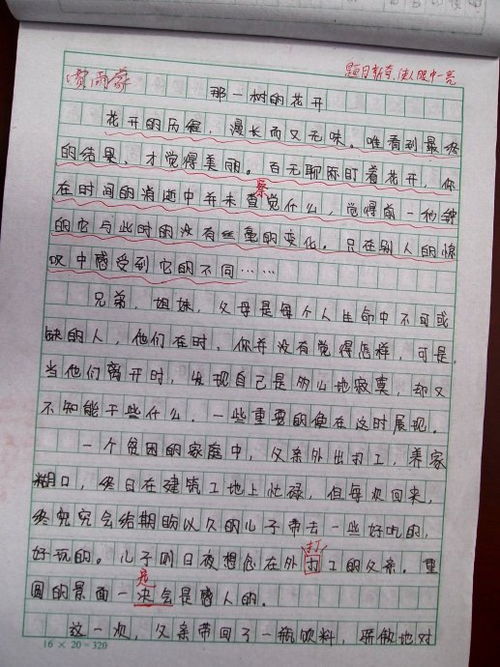 题目新奇,使人眼中一亮
贾雨蒙
那一树的花开
花开的历程,漫长而又无味。唯看到最终
的结果,才觉得美丽。百无聊际盯着花开,你
察
在时间的消逝中并未查觉什么,觉得前一秒钟
的它与此时的没有丝毫的变化。只在别人的惊
叹中感受到它的不同……
兄弟,姐妹,父母是每个人生命中不可或
缺的人,他们在时,你并没有觉得怎样,可是,
当他们离开时,发现自己是多么地寂寞,却又
不知能干些什么,一些重要的便在这时展现。
一个贫困的家庭中,父亲外出打工,养家
糊口,终日在建筑工地上忙碌,但每次回来,
终究会给期盼以久的儿子带去一些好吃的,
打
好玩的。儿子则日夜想念在外打工的父亲。重
总
圆的景面一决会是感人的。
这一次,父亲带回了一瓶饮料,骄傲地对
16 × 20 = 320